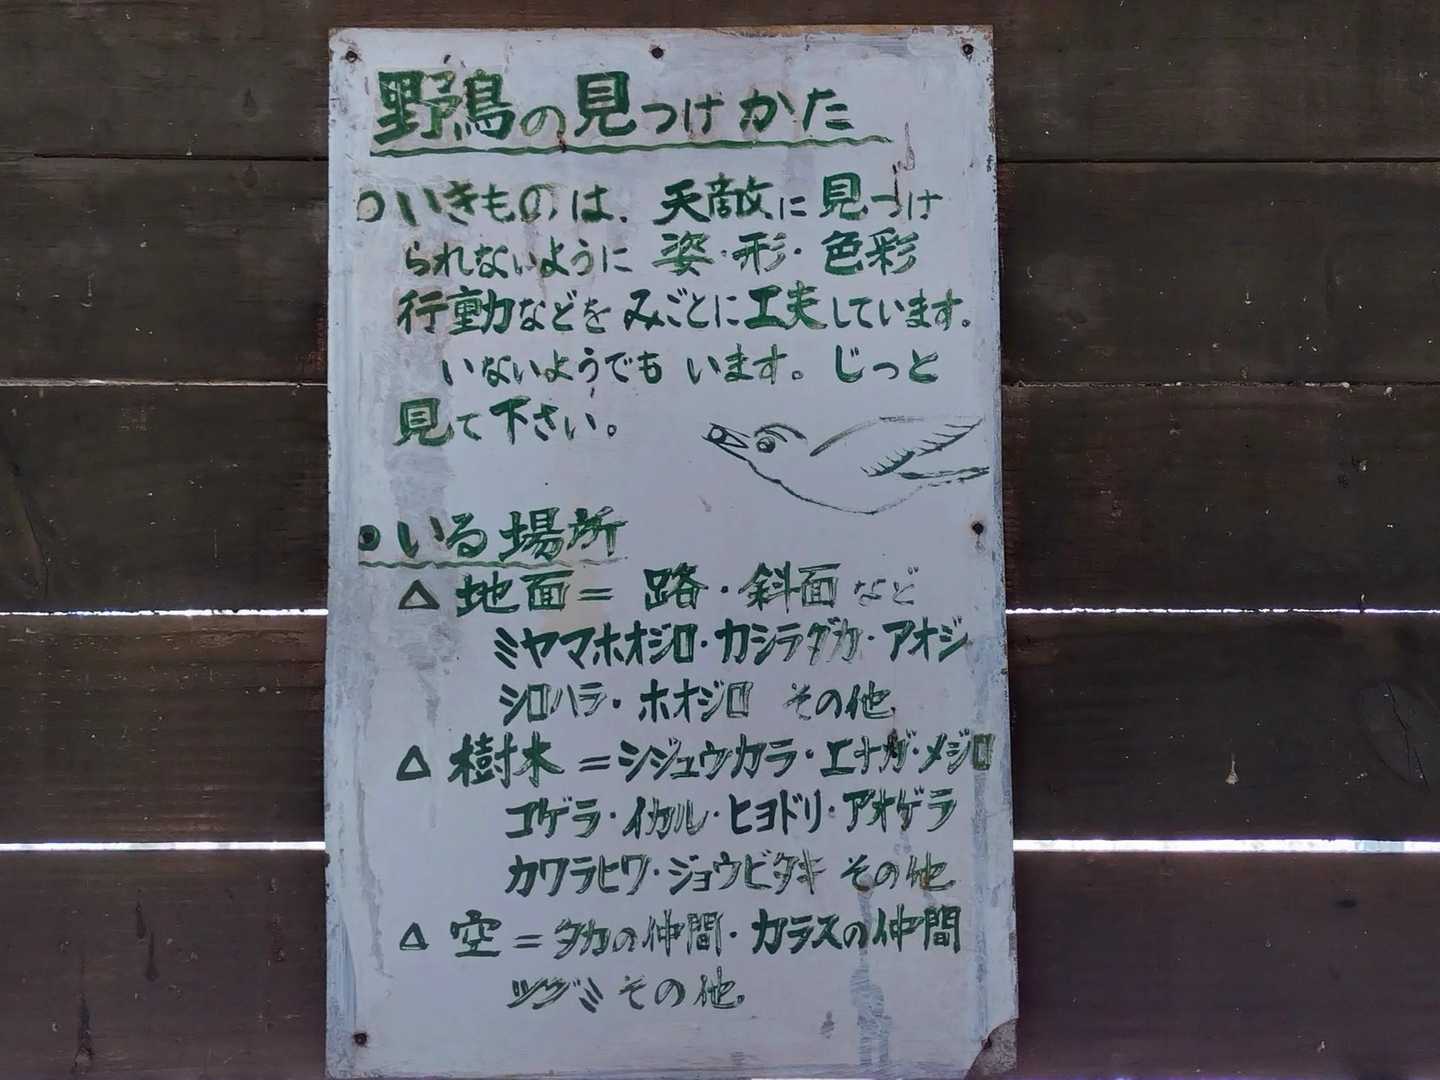 野鳥の見つけかた
○いきものは、天敵に見つけ
られないように 姿・形・色彩
行動などをみごとに工夫しています。
いないようでも います。じっと
見て下さい。
○いる場所
△ 地面＝ 路・斜面 など
ミヤマホオジロ・カシラダカ・アオジ
シロハラ・ホオジロ その他
△ 樹木＝シジュウカラ・エナガ・メジロ
コゲラ・イカル・ヒヨドリ・アオゲラ
カワラヒワ・ジョウビタキ その他
△ 空＝タカの仲間・カラスの仲間
ツグミ その他.